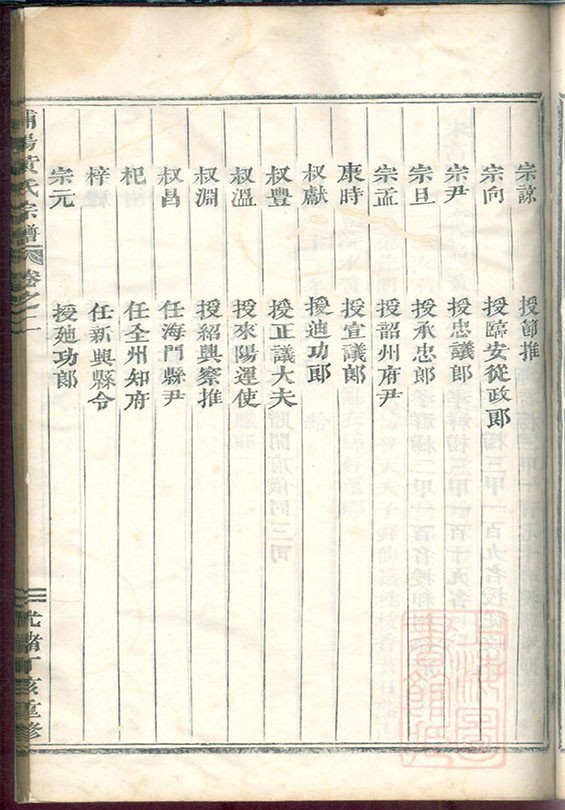 宗諒　授節推
宗向　授臨安從政郎
宗尹　授忠議郎
宗旦　授承忠郎
宗孟　授韶州府尹
康時　授宣議郎
叔獻　授迪功郎
叔豐　授正議大夫
叔溫　授來陽運使
叔淵　授紹興察推
叔昌　任海門縣尹
杞　任全州知府
梓　任新興縣令
宗元　授廸功郎
浦陽黄氏宗譜　卷之二　光緒丁亥重修